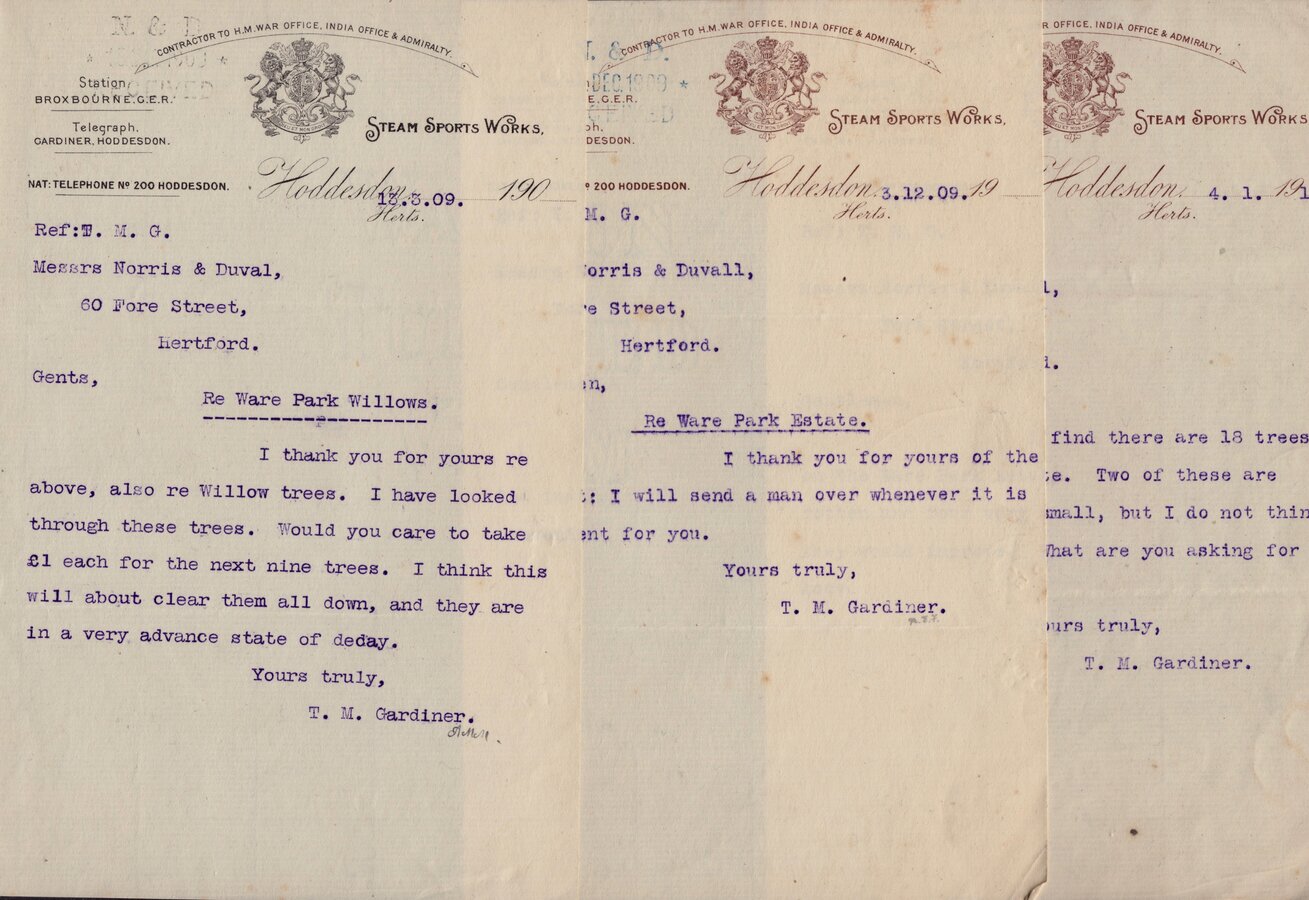 N & D
CONTRACTOR TO H.M. WAR OFFICE, INDIA OFFICE & ADMIRALTY.
Station
BROXBOURNE.G.E.R.
Telegraph.
GARDINER, HODDESDON.
STEAM SPORTS WORKS,
NAT: TELEPHONE Nº 200 HODDESDON.
Hoddesdon, 13.3.09. 190
Herts.
Ref:T. M. G.
Messrs Norris & Duval,
60 Fore Street,
Hertford.
Gents,
Re Ware Park Willows.
I thank you for yours re
above, also re Willow trees. I have looked
through these trees. Would you care to take
£1 each for the next nine trees. I think this
will about clear them all down, and they are
in a very advance state of deday.
Yours truly,
T. M. Gardiner.
& D.
DEC. 1909 *
CONTRACTOR TO H.M. WAR OFFICE, INDIA OFFICE & ADMIRALTY.
E.G.E.R.
ph.
DESDON.
STEAM SPORTS WORKS,
º 200 HODDESDON.
Hoddesdon, 3.12.09. 19
Herts.
M. G.
orris & Duvall,
re Street,
Hertford.
en,
Re Ware Park Estate.
I thank you for yours of the
t: I will send a man over whenever it is
ent for you.
Yours truly,
T. M. Gardiner.
R OFFICE, INDIA OFFICE & ADMIRALTY.
STEAM SPORTS WORKS,
Hoddesdon, 4. 1. 191
Herts.
l,
d.
find there are 18 trees
te. Two of these are
small, but I do not thin
What are you asking for
ours truly,
T. M. Gardiner.